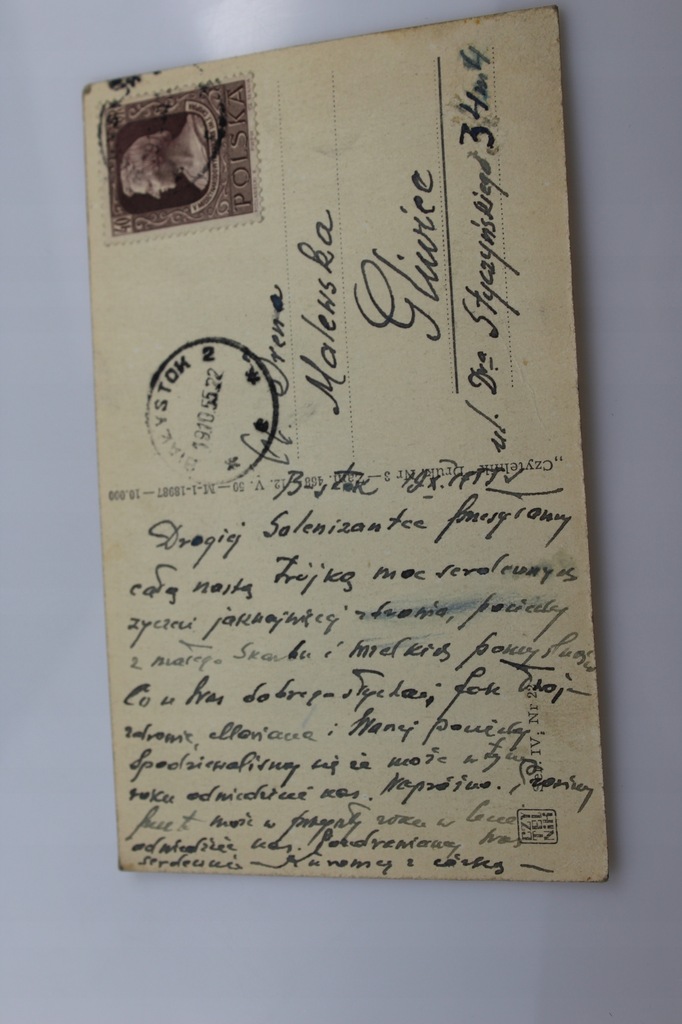 POLSKA
40
BIAŁYSTOK 2
19.10.55.22
W. Irena
Malewska
Gliwice
ul. Dra Styczyńskiego 34 m 4
„Czytelnik" Druk. Nr 3 — Zam. 468 12. V. 50 — M-1-18987 — 10.000
B-stok 19.X.
Drogiej Solenizantce przesyłamy
całą naszą trójką moc serdecznych
życzeń jaknajwięcej zdrowia, pociechy
z małego Skarbu i wielkiej pomyślności
Co u Was dobrego słychać, jak Twoje
zdrowie, Mariana i Waszej pociechy.
Spodziewaliśmy się że może w tym
roku odwiedzicie nas. Napróżno.
może w przyszłym roku w lecie
odwiedzicie nas. Pozdrawiamy Was
serdecznie — z córką —
Ser. IV; Nr 2
CZY
TEL
NIK